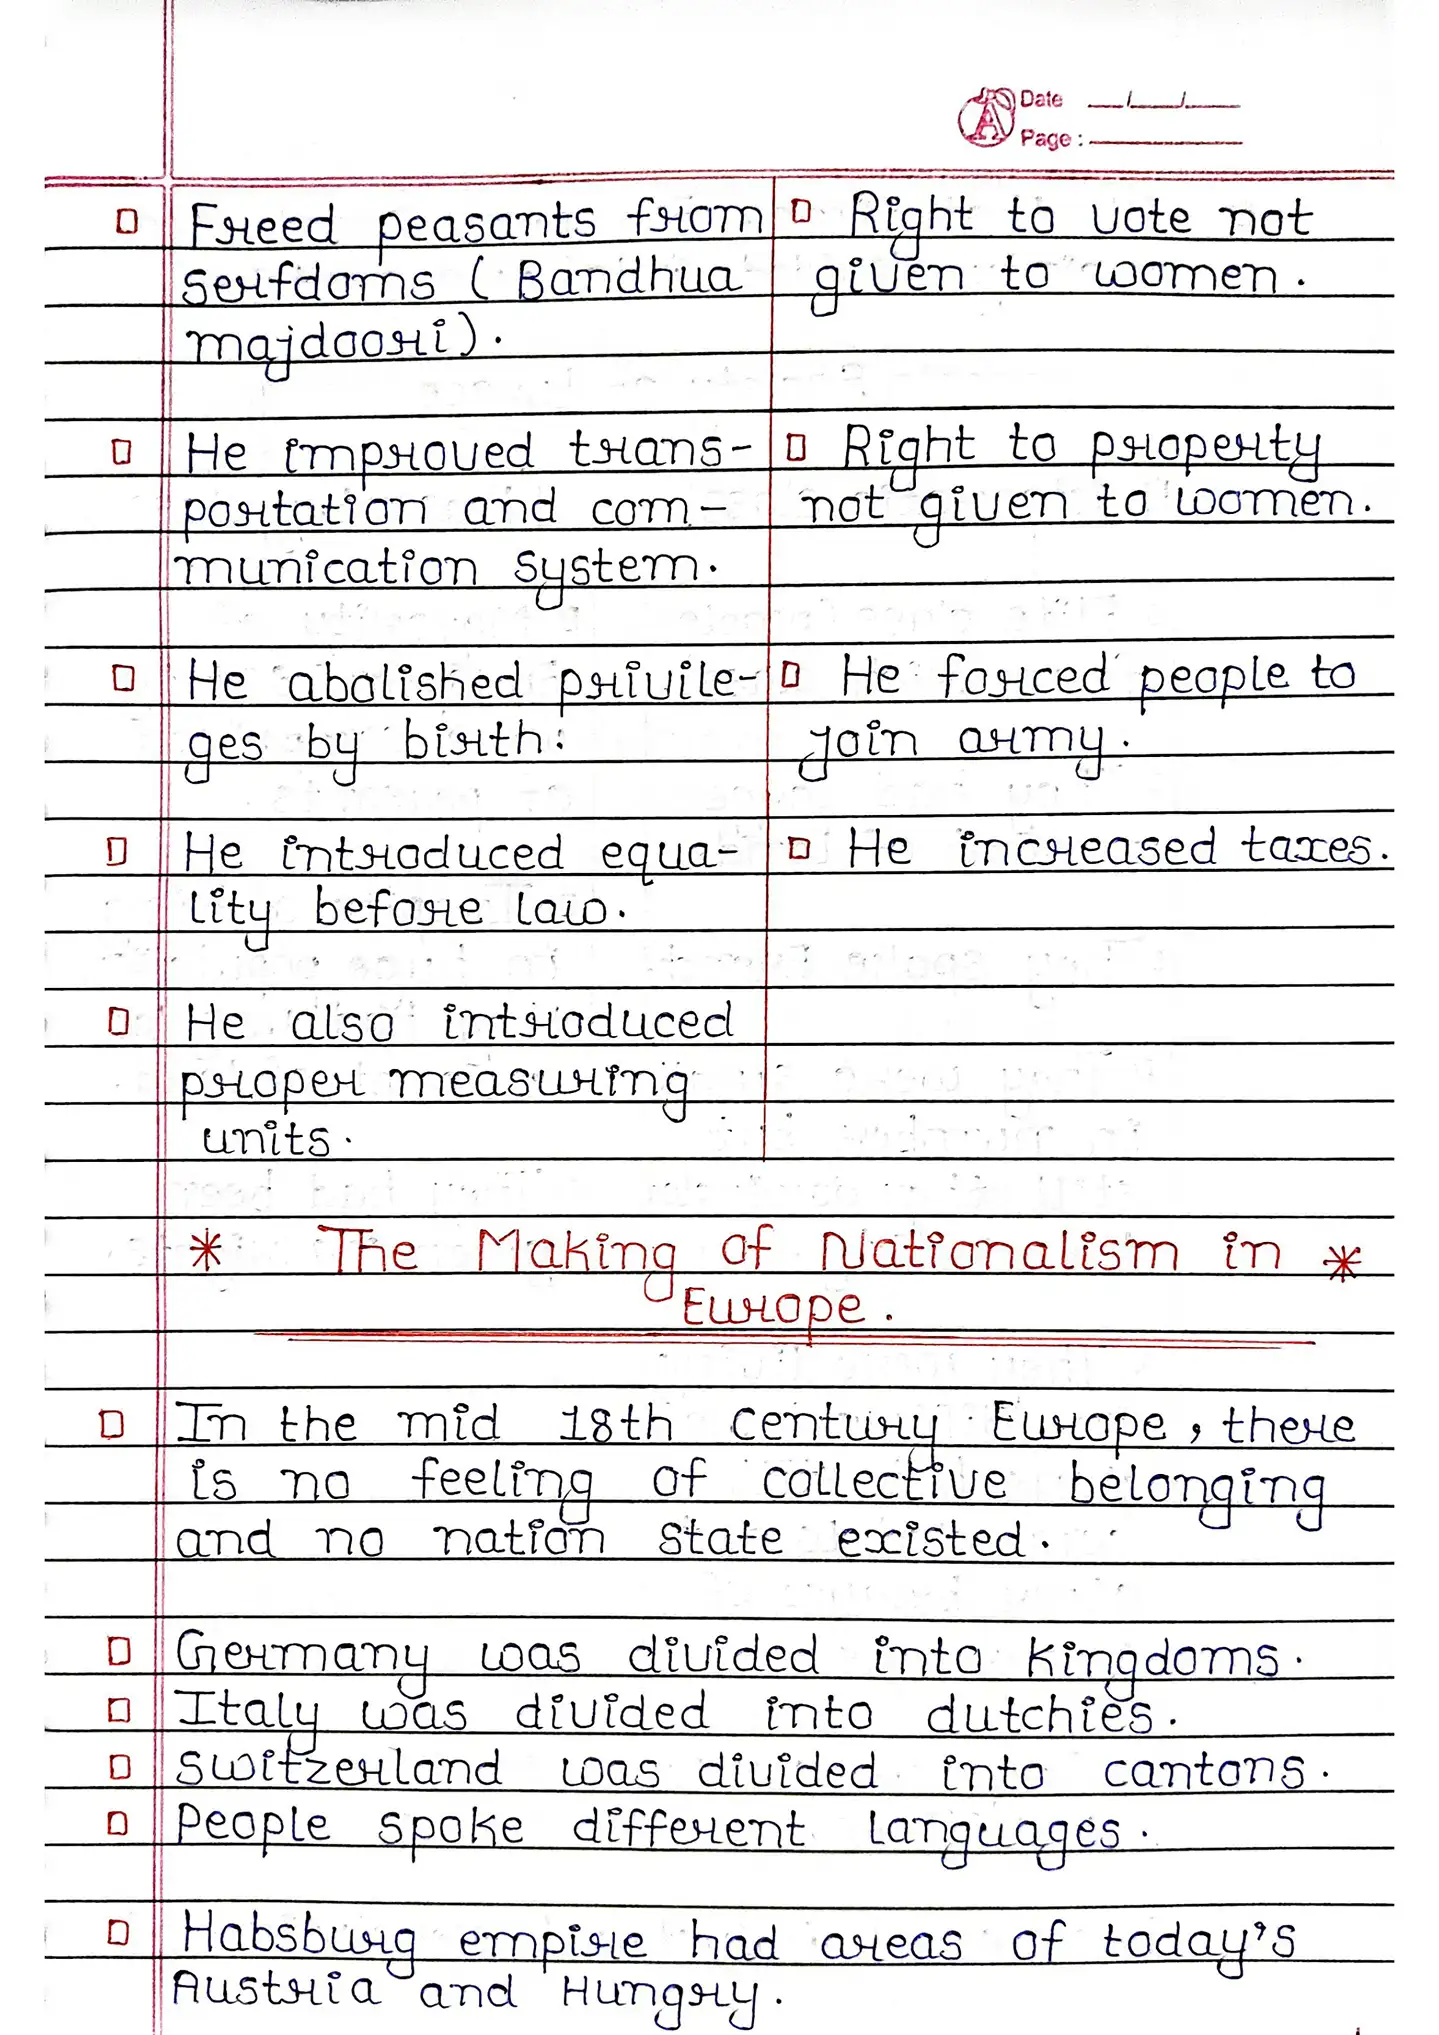 Date __/__/__
Page:
□ Freed peasants from
serfdoms ( Bandhua
majdoori).
□ He improved trans-
portation and com-
munication system.
□ He abolished privile-
ges by birth.
□ He introduced equa-
lity before law.
□ He also introduced
proper measuring
units.
□ Right to vote not
given to women.
□ Right to property
not given to women.
□ He forced people to
join army.
□ He increased taxes.
* The Making of Nationalism in *
Europe.
□ In the mid 18th century Europe, there
is no feeling of collective belonging
and no nation state existed.
□ Germany was divided into kingdoms.
□ Italy was divided into dutchies.
□ Switzerland was divided into cantons.
□ People spoke different languages.
□ Habsburg empire had areas of today's
Austria and Hungry.